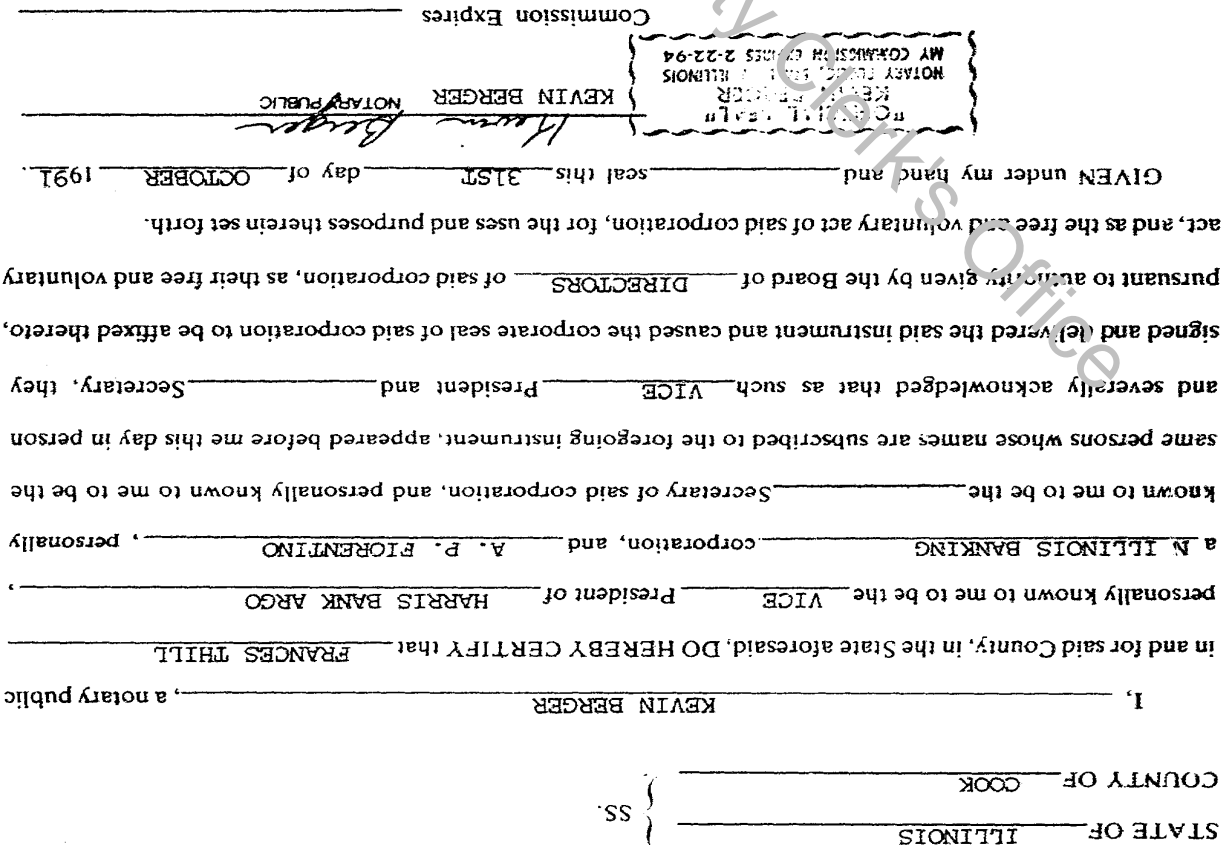 STATE OF ILLINOIS
COUNTY OF COOK
SS.
I, KEVIN BERGER, a notary public
in and for said County, in the State aforesaid, DO HEREBY CERTIFY that FRANCES THILL
personally known to me to be the VICE President of HARRIS BANK ARGO,
a N ILLINOIS BANKING corporation, and A. P. FIORENTINO, personally
known to me to be the Secretary of said corporation, and personally known to me to be the
same persons whose names are subscribed to the foregoing instrument, appeared before me this day in person
and severally acknowledged that as such VICE President and Secretary, they
signed and delivered the said instrument and caused the corporate seal of said corporation to be affixed thereto,
pursuant to authority given by the Board of DIRECTORS of said corporation, as their free and voluntary
act, and as the free and voluntary act of said corporation, for the uses and purposes therein set forth.
GIVEN under my hand and seal this 31ST day of OCTOBER 1991.
Kevin Berger
KEVIN BERGER NOTARY PUBLIC
"OFFICIAL SEAL"
KEVIN BERGER
NOTARY PUBLIC, ILLINOIS
MY COMMISSION EXPIRES 2-22-94
Commission Expires
y Clerk's Office